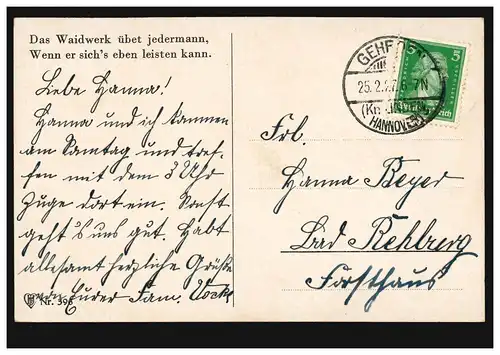 Das Waidwerk übet jedermann,
Wenn er sich's eben leisten kann.
Liebe Hanna!
Hanna und ich kommen
am Samtag und tref-
fen mit dem 3 Uhr
Zuge dort ein. Sonst
geht's uns gut. Habt
allesamt herzliche Grüße
Eurer Fam.
Nr. 396
25.2.27. 6-7N
HANNOVER
5 5
Frl.
Hanna Beyer
Bad Rehberg
Forsthaus